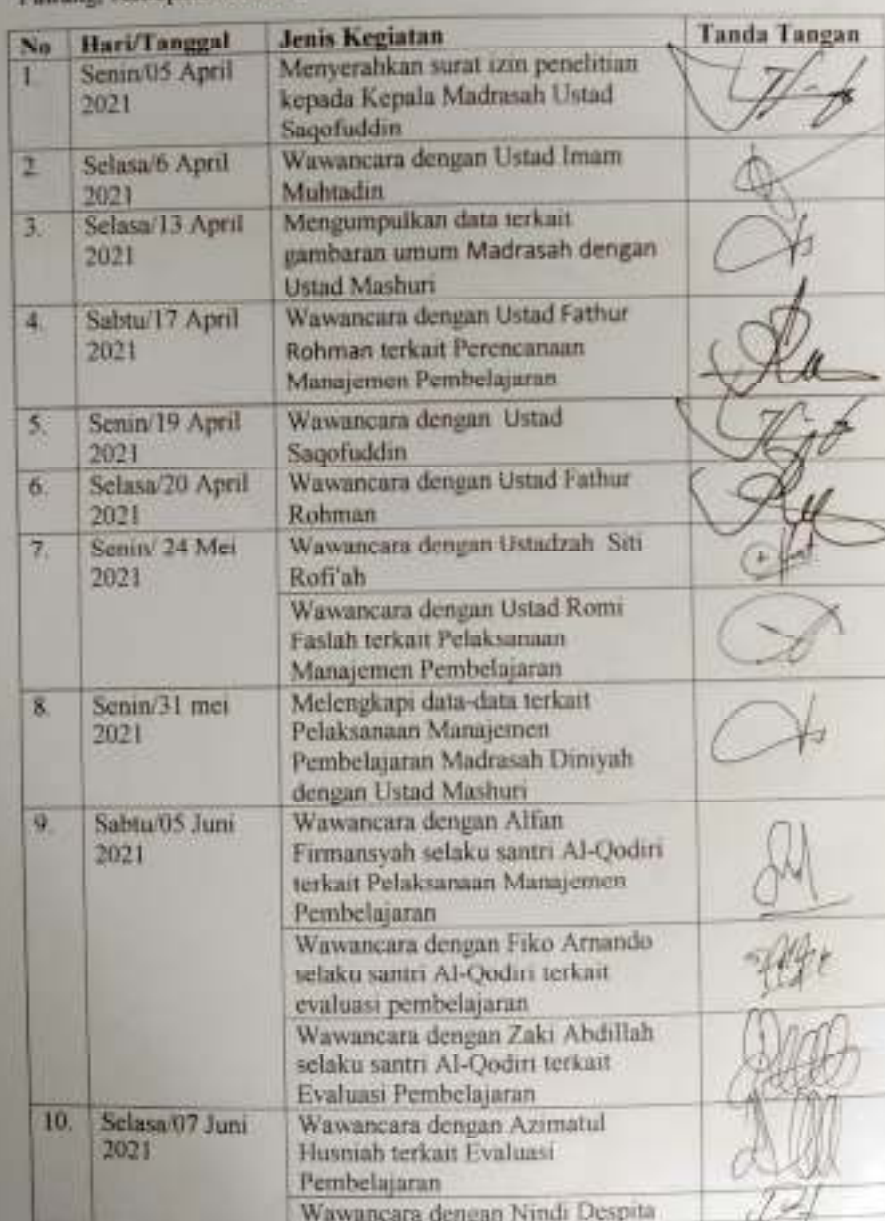 No Hari/Tanggal Jenis Kegiatan Tanda Tangan
1. Senin/05 April 2021
Menyerahkan surat izin penelitian
kepada Kepala Madrasah Ustad
Saqofuddin
2. Selasa/6 April 2021
Wawancara dengan Ustad Imam
Muhtadin
3. Selasa/13 April 2021
Mengumpulkan data terkait
gambaran umum Madrasah dengan
Ustad Mashuri
4. Sabtu/17 April 2021
Wawancara dengan Ustad Fathur
Rohman terkait Perencanaan
Manajemen Pembelajaran
5. Senin/19 April 2021
Wawancara dengan Ustad
Saqofuddin
6. Selasa/20 April 2021
Wawancara dengan Ustad Fathur
Rohman
7. Senin/ 24 Mei 2021
Wawancara dengan Ustadzah Siti
Rofi'ah
Wawancara dengan Ustad Romi
Faslah terkait Pelaksanaan
Manajemen Pembelajaran
8. Senin/31 mei 2021
Melengkapi data-data terkait
Pelaksanaan Manajemen
Pembelajaran Madrasah Diniyah
dengan Ustad Mashuri
9. Sabtu/05 Juni 2021
Wawancara dengan Alfan
Firmansyah selaku santri Al-Qodiri
terkait Pelaksanaan Manajemen
Pembelajaran
Wawancara dengan Fiko Arnando
selaku santri Al-Qodiri terkait
evaluasi pembelajaran
Wawancara dengan Zaki Abdillah
selaku santri Al-Qodiri terkait
Evaluasi Pembelajaran
10. Selasa/07 Juni 2021
Wawancara dengan Azimatul
Husniah terkait Evaluasi
Pembelajaran
Wawancara dengan Nindi Despita